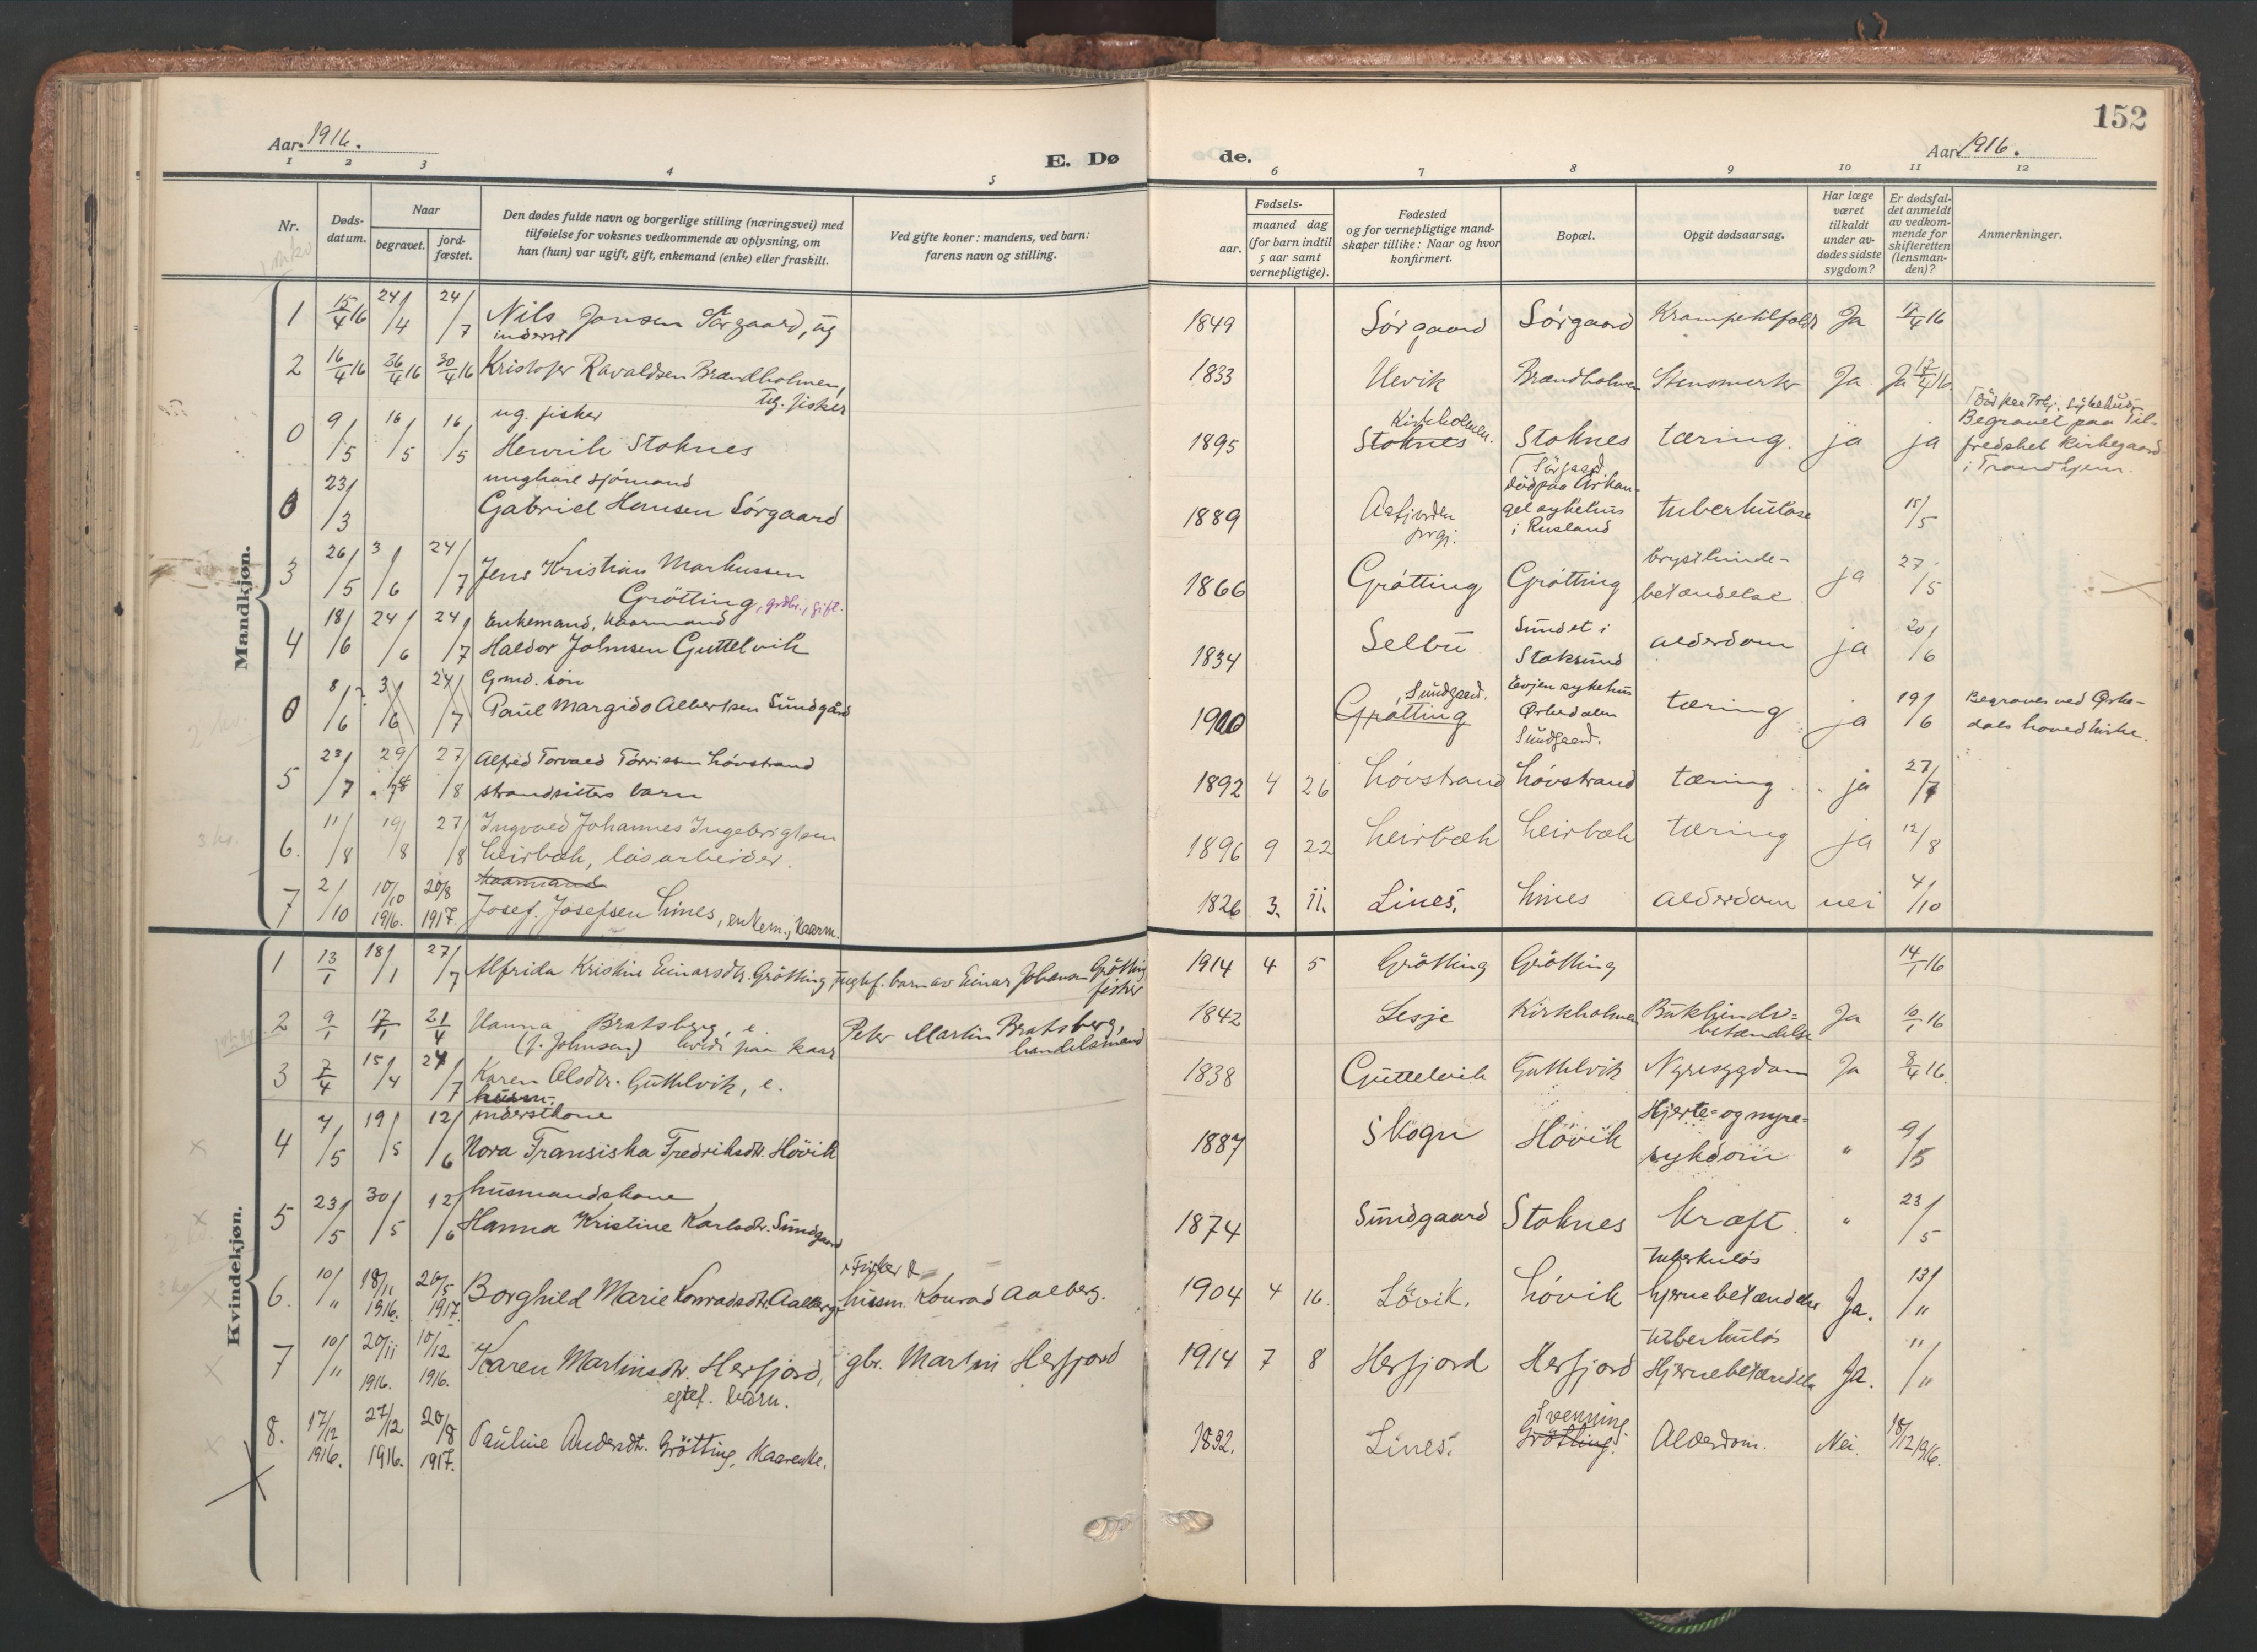 152
Aar. 1916.
E. Dø
de.
Aar 1916.
1 2 3 4 5 6 7 8 9 10 11 12
Nr.
Døds-
datum.
Naar
begravet.
jord-
fæstet.
Den dødes fulde navn og borgerlige stilling (næringsvei) med
tilføielse for voksnes vedkommende av oplysning, om
han (hun) var ugift, gift, enkemand (enke) eller fraskilt.
Ved gifte koner: mandens, ved barn:
farens navn og stilling.
Fødsels-
aar.
maaned dag
(for barn indtil
5 aar samt
vernepligtige).
Fødested
og for vernepligtige mand-
skaper tillike: Naar og hvor
konfirmert.
Bopæl.
Opgit dødsaarsag.
Har læge
været
tilkaldt
under av-
dødes sidste
sygdom?
Er dødsfal-
det anmeldt
av vedkom-
mende for
skifteretten
(lensman-
den)?
Anmerkninger.
Mandkjøn.
1 15/4 16 24/4 24/7 Nils Jonsen Sørgaard, ug
inderst
1849 Sørgaard Sørgaard Krampetilfald Ja 17/4 16
2 16/4 16 26/4 16 30/4 16 Kristofer Ravaldsen Brandholmen,
ug. fisker
1833 Uevik Brandholmen Stensmerter Ja Ja 17/4 16
0 9/5 16/5 16/5 ug. fisker
Henrik Stoknes
1895 Kirkholmen.
Stoknes Stoknes tæring. ja ja
Død paa Trhj. sykehus
Begravet paa Til-
fredshet Kirkegaard
i Trondhjem.
0 23/3 ungkarl sjømand
Gabriel Hansen Sørgaard
1889 Aafjorden
prgj.
Sørgaard.
død paa Arkan-
gel sykehus
i Rusland
tuberkulose 15/5
3 26/5 3/6 24/7 Jens Kristian Markussen
Grøtting, grdbr., gift.
1866 Grøtting Grøtting brysthinde-
betændelse ja 27/5
4 18/6 24/6 24/7 Enkemand, kaarmand
Haldor Johnsen Guttelvik
1834 Selbu Sundet i
Stoksund alderdom ja 20/6
0 8/6 3/6 24/7 Gmd. søn
Paul Margido Albertsen Sundgård
1900 Sundgaard.
Grøtting
Evjen sykehus
Ørkedalen
Sundgaard.
tæring ja 19/6 Begraves ved Ørke-
dals hovedkirke.
5 23/7 29/7 27/8 Alfred Torvald Torrissen Løvstrand
strandsitters barn
1892 4 26 Løvstrand Løvstrand tæring ja 27/7
6. 11/8 19/8 27/8 Ingvald Johannes Ingebrigtsen
Leirbæk, løsarbeider.
1896 9 22 Leirbæk Leirbæk tæring ja 12/8
7 2/10 10/10 1916. 20/8 1917. kaarmand
Josef Josefsen Lines, enkem., kaarm.
1826 3. 11. Lines. Lines alderdom nei 4/10
Kvindekjøn.
1 13/1 18/1 27/7 Alfrida Kristine Einarsdtr. Grøtting, ugtef. barn av Einar Johansen Grøtting
fisker
1914 4 5 Grøtting Grøtting 14/1 16
2 9/1 17/1 21/4 Hanna Bratsberg, e.
(f. Johnsen) levde paa kaar
Peter Martin Bratsberg,
handelsmand
1842 Lesje Kirkholmen Bukhinde-
betændelse Ja 10/1 16
3 7/4 15/4 24/7 Karen Olsdtr. Guttelvik, e.
1838 Guttelvik Guttelvik Nyresygdom Ja 8/4 16.
husm.
4 7/5 19/5 12/6 inderstkone
Nora Fransiska Fredriksdtr. Høvik
1887 Skogn Høvik Hjerte- og nyre-
sykdom " 9/5
5 23/5 30/5 12/6 husmandskone
Hanna Kristine Karlsdtr. Sundgaard
1874 Sundgaard Stoknes kræft. " 23/5
6. 10/" 18/11 1916. 20/5 1917. Borghild Marie Konradsdtr. Aalberg
Fisker &
husm. Konrad Aalberg.
1904 4 16. Løvik. Løvik tuberkuløs
hjernebetændelse Ja. 13/"
7 10/" 20/11 1916. 10/12 1916. Karen Martinsdtr. Herfjord,
egtef. barn.
gbr. Martin Herfjord
1914 7 8 Herfjord Herfjord tuberkuløs
Hjernebetændelse Ja. "/"
8. 17/12 1916. 27/12 1916. 20/8 1917. Pauline Andersdtr. Grøtting, kaarenke.
1832. Lines. Svenning
Grøtting. Alderdom. Nei. 18/12 1916.